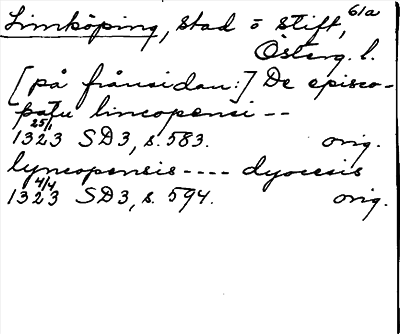 Linköping, stad o stift, 61a
Österg. l.
[på frånsidan:] De episco-
patu lincopensi --
25/1
1323 SD3, s. 583. orig.
lyncopensis ---- dyocesis
4/4
1323 SD3, s. 594. orig.